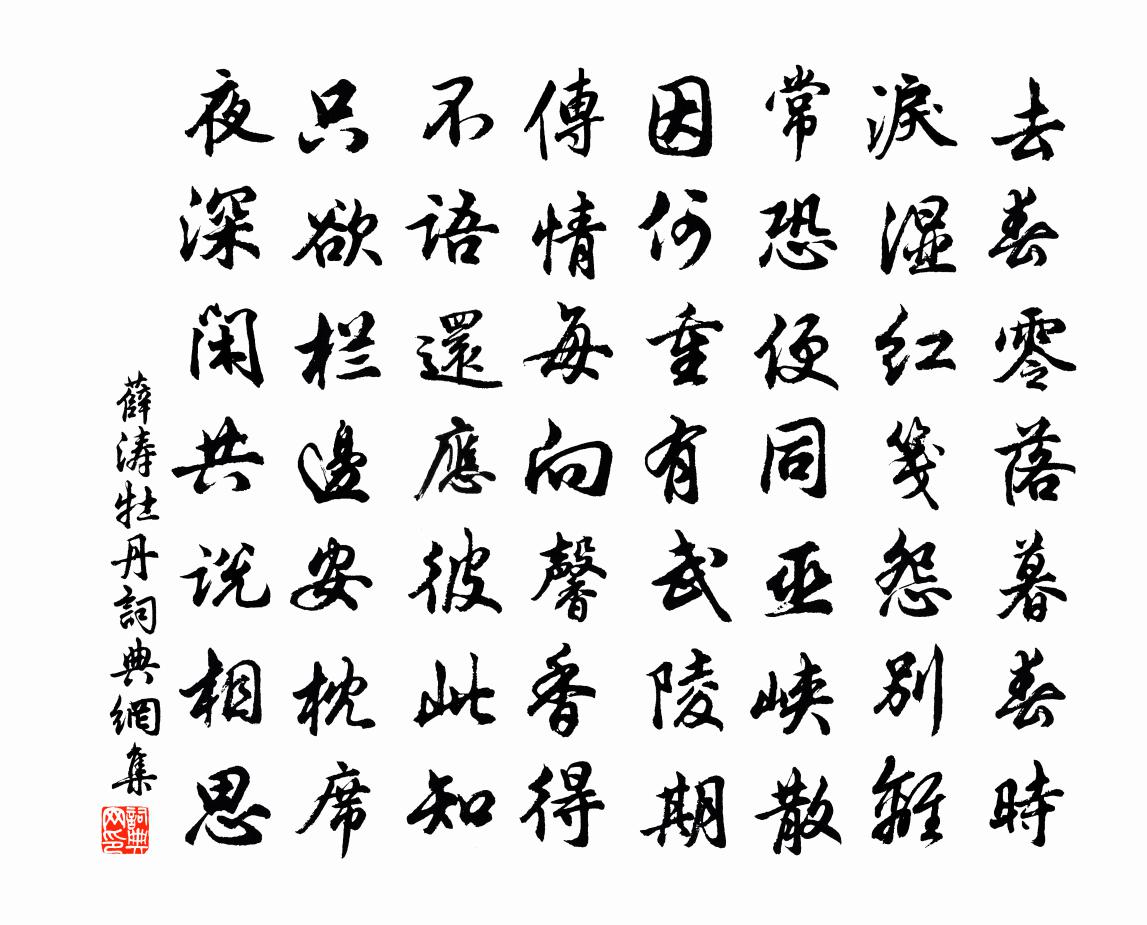 去春零落暮春時
淚濕红箋怨別離
常恐便同巫峽散
因何重有武陵期
傳情每向馨香得
不語還應彼此知
只欲栏邊安枕席
夜深閑共説相思
薛涛牡丹詞典網集
詞典
网印